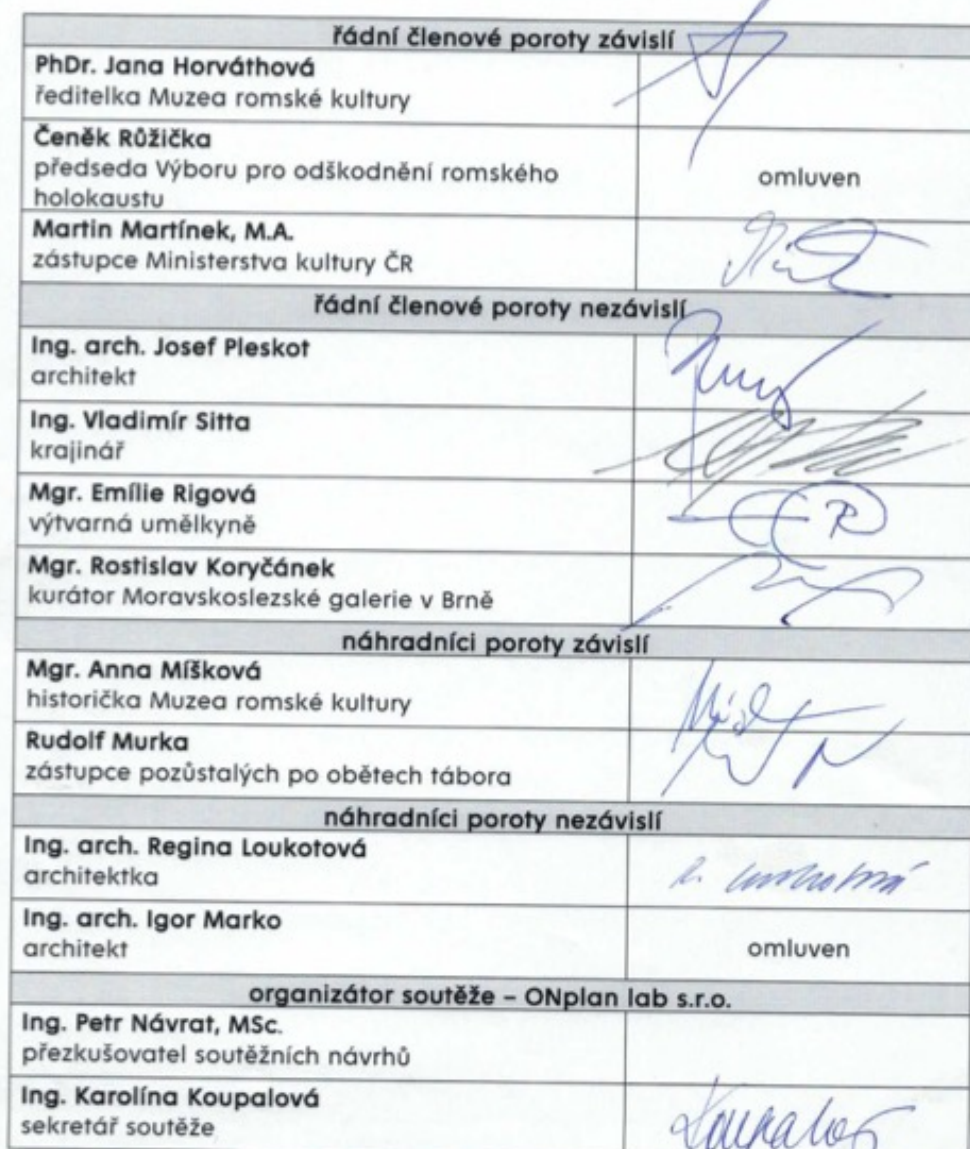 řádní členové poroty závislí
PhDr. Jana Horváthová
ředitelka Muzea romské kultury
Čeněk Růžička
předseda Výboru pro odškodnění romského
holokaustu
omluven
Martin Martínek, M.A.
zástupce Ministerstva kultury ČR
řádní členové poroty nezávislí
Ing. arch. Josef Pleskot
architekt
Ing. Vladimír Sitta
krajinář
Mgr. Emílie Rigová
výtvarná umělkyně
Mgr. Rostislav Koryčánek
kurátor Moravskoslezské galerie v Brně
náhradníci poroty závislí
Mgr. Anna Míšková
historička Muzea romské kultury
Rudolf Murka
zástupce pozůstalých po obětech tábora
náhradníci poroty nezávislí
Ing. arch. Regina Loukotová
architektka
Ing. arch. Igor Marko
architekt
omluven
organizátor soutěže – ONplan lab s.r.o.
Ing. Petr Návrat, MSc.
přezkušovatel soutěžních návrhů
Ing. Karolína Koupalová
sekretář soutěže